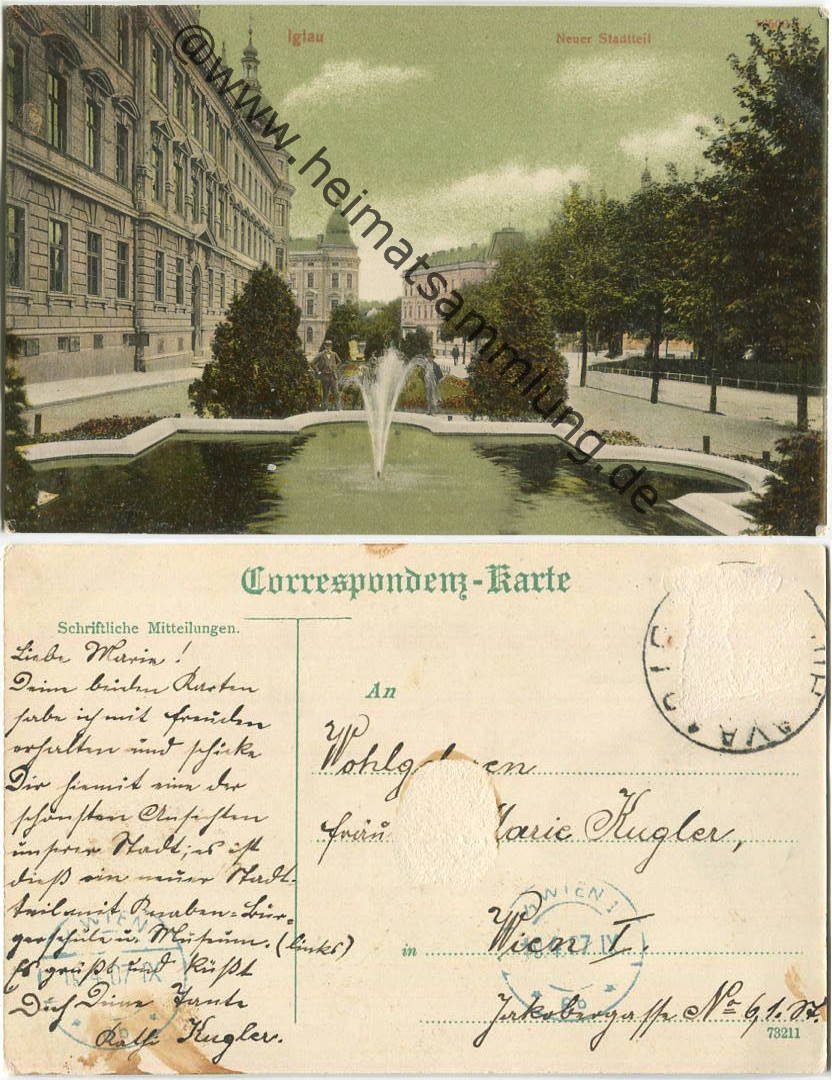 Iglau
Neuer Stadtteil
@www.heimatsammlung.de
Correspondenz-Karte
Schriftliche Mitteilungen.
Liebe Marie!
Deine beiden Karten
habe ich mit freuden
erhalten und schicke
Dir hiemit eine der
schönsten Ansichten
unserer Stadt; es ist
dieß ein neuer Stadt-
teil mit Knaben-Bür-
gerschule u. Museum. (links)
Es grüßt und küßt
Dich Deine Tante
Käthi Kugler.
An
Wohlgeboren
fräu Marie Kugler,
in Wien I.
Jakobergasse No 6, 1. St.
73211
WIEN 1
WIEN
16.4.07 IX